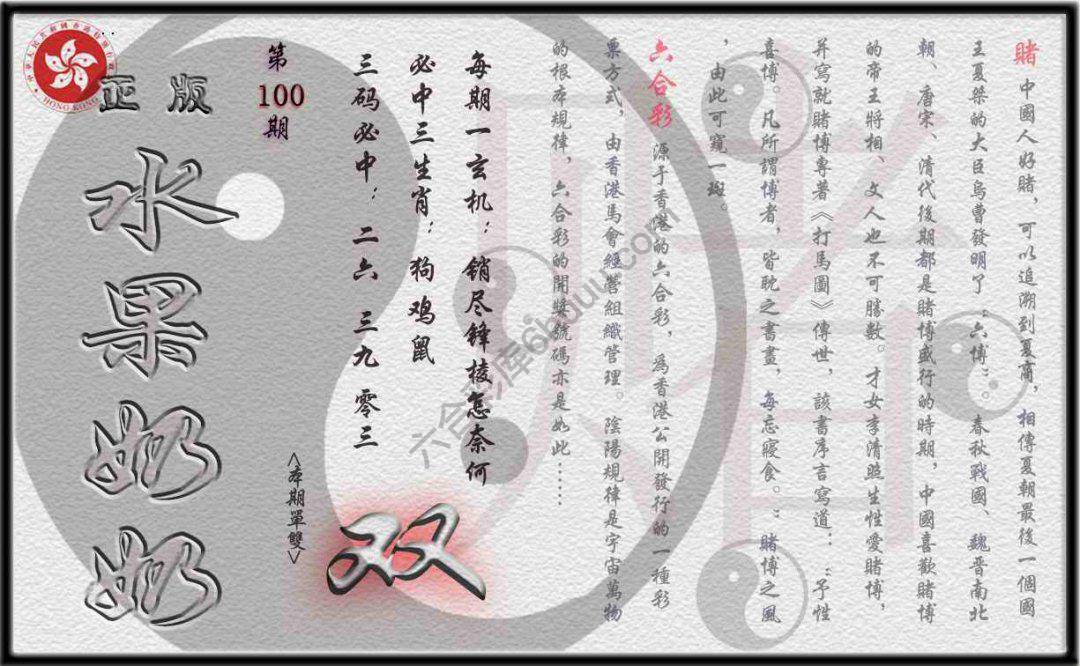 賭 中國人好賭，可以追溯到夏商，相傳夏朝最後一個國
王夏桀的大臣烏曹發明了“六博”。春秋戰國、魏晋南北
朝、唐宋、清代後期都是賭博盛行的時期，中國喜歡賭博
的帝王將相、文人也不可勝數。才女李清照生性愛賭博，
并寫就賭博專著《打馬圖》傳世，該書序言寫道：“予性
喜博。凡所謂博者，皆耽之書畫，每忘寢食。”賭博之風
，由此可窺一斑。
六合彩 源于香港的六合彩，為香港公開發行的一種彩
票方式，由香港馬會經營組織管理。陰陽規律是宇宙萬物
的根本規律，六合彩的開獎號碼亦是如此……
每期一玄机：销尽锋棱怎奈何
必中三生肖：狗鸡鼠
三码必中：二六 三九 零三
双
<本期單雙>
第
100
期
正版
水果奶奶
HONG KONG
六合彩库6huuu.com